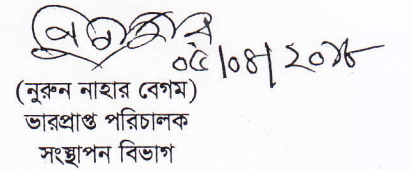 ০৫/০৪/২০১৮
(নুরুন নাহার বেগম)
ভারপ্রাপ্ত পরিচালক
সংস্থাপন বিভাগ